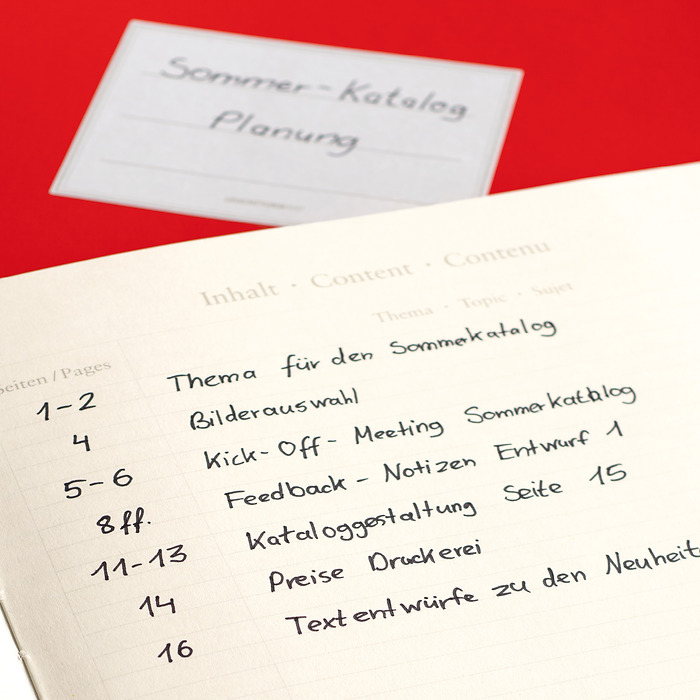 Sommer-Katalog
Planung
Inhalt · Content · Contenu
Thema · Topic · Sujet
Seiten / Pages
1-2 Thema für den Sommerkatalog
4 Bilderauswahl
5-6 Kick-Off-Meeting Sommerkatalog
8 ff. Feedback-Notizen Entwurf 1
11-13 Kataloggestaltung Seite 15
14 Preise Druckerei
16 Textentwürfe zu den Neuheit